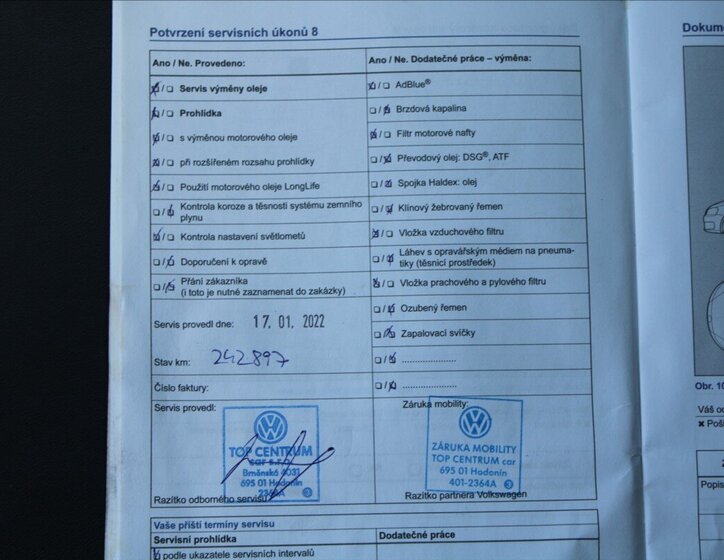 Potvrzení servisních úkonů 8
Ano / Ne. Provedeno:
Servis výměny oleje
Prohlídka
s výměnou motorového oleje
při rozšířeném rozsahu prohlídky
Použití motorového oleje LongLife
Kontrola koroze a těsnosti systému zemního
plynu
Kontrola nastavení světlometů
Doporučení k opravě
Přání zákazníka
(i toto je nutné zaznamenat do zakázky)
Servis provedl dne: 17. 01. 2022
Stav km: 242897
Číslo faktury:
Servis provedl:
TOP CENTRUM
car s.r.o.
Brněnská 4031
695 01 Hodonín
Razítko odborného servisu
Ano / Ne. Dodatečné práce – výměna:
AdBlue®
Brzdová kapalina
Filtr motorové nafty
Převodový olej: DSG®, ATF
Spojka Haldex: olej
Klínový žebrovaný řemen
Vložka vzduchového filtru
Láhev s opravářským médiem na pneuma-
tiky (těsnicí prostředek)
Vložka prachového a pylového filtru
Ozubený řemen
Zapalovací svíčky
.....................
.....................
Záruka mobility:
ZÁRUKA MOBILITY
TOP CENTRUM car
695 01 Hodonín
401-2364A 3
Razítko partnera Volkswagen
Vaše příští termíny servisu
Servisní prohlídka
Dodatečné práce
podle ukazatele servisních intervalů
Dokum
Obr. 10
Váš o
Popis